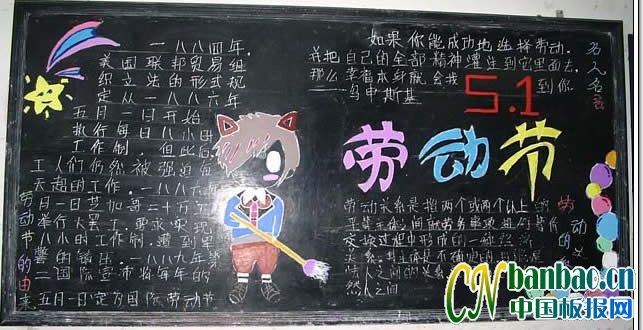 一八八四年,
美国联邦贸易组
织立法的形式规
定从一八八六年
五月一日开始
执行每日八小时
工作制 但此后
工人们仍然被强迫每
天超的工作.一八八六年
月一日芝加哥二十万工
举行大罢工,要求实现
八小时的工作制.遭到
警的镇压.一八八九年第
二国际宣布将每年的
五月一日定为国际劳动节
劳动节的由来
如果你能成功地选择劳动.
并把自己的全部精神灌注到它里面去.
那么幸福本身就会找到你.
——乌申斯基
名人名言
5.1
劳动节
劳动关系是指两个或两个以上
交换过程中形成的一种经济
关系.
法人之间的关系
然人之间
CN banbao.cn
中国板报网